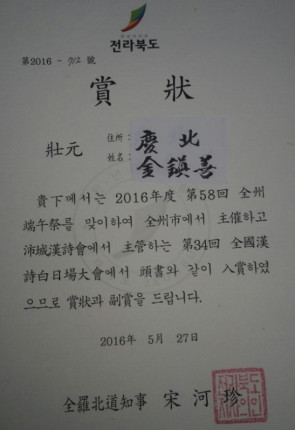 전라북도
第2016 - 712 號
賞狀
壯元
住所: 慶北
姓名: 金鎭善
貴下께서는 2016年度 第58回 全州
端午祭를 맞이하여 全州市에서 主催하고
沛城漢詩會에서 主管하는 第34回 全國漢
詩白日場大會에서 頭書와 같이 入賞하였
으므로 賞狀과 副賞을 드립니다.
2016年 5月 27日
全羅北道知事 宋河珍